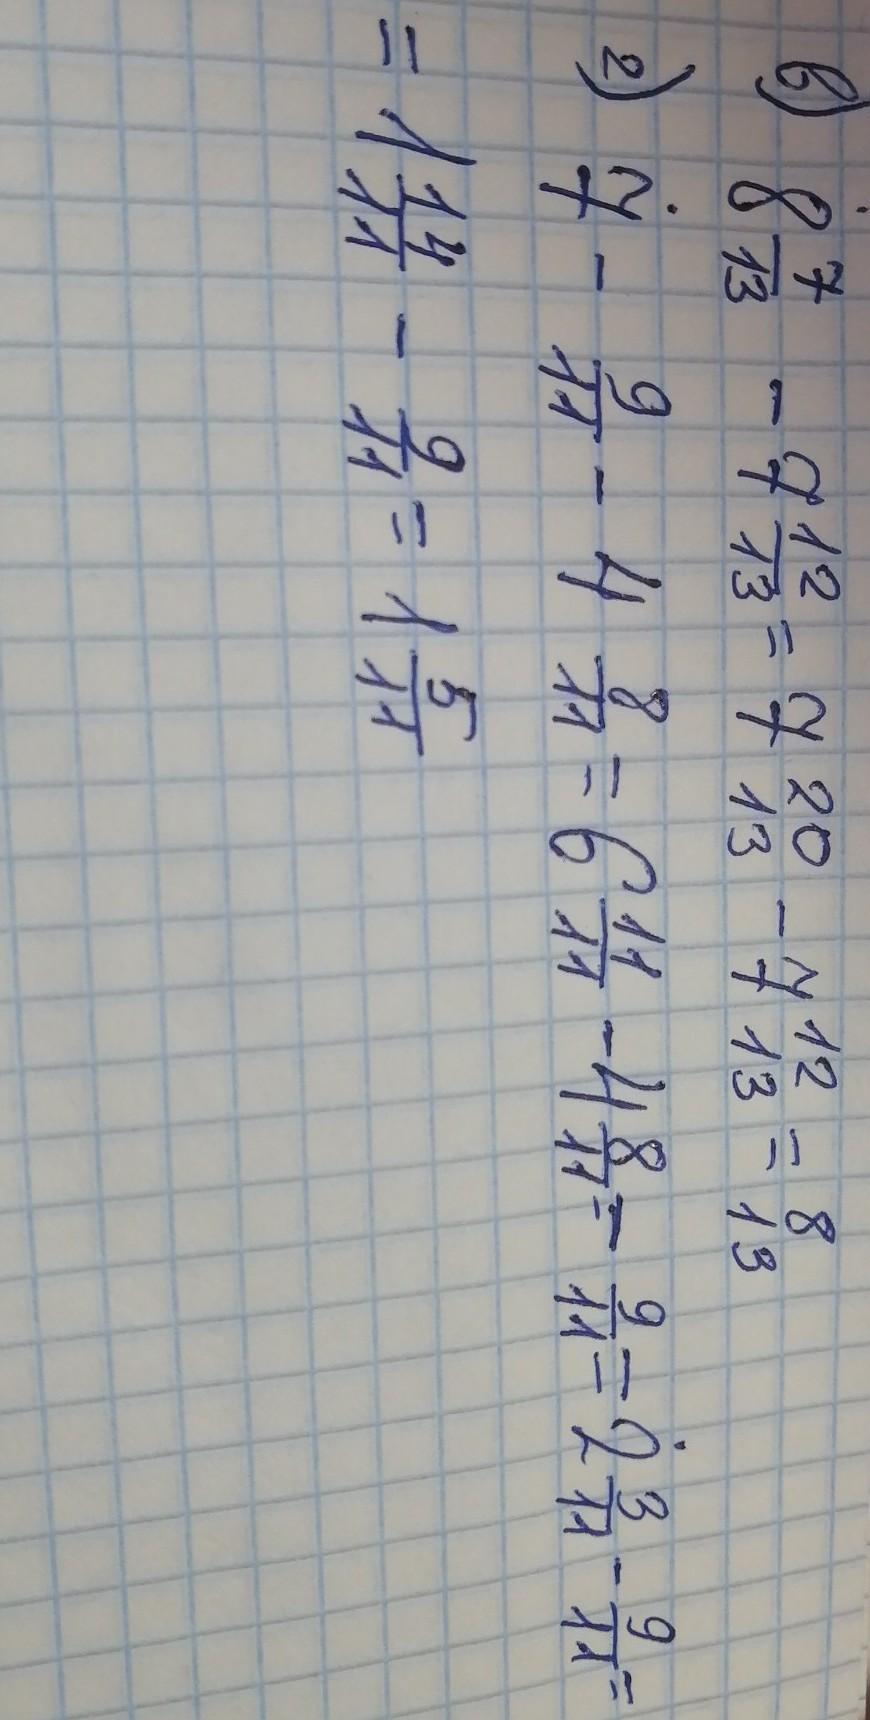 в) 8 7/13 - 7 12/13 = 7 20/13 - 7 12/13 = 8/13
г) 7 - 9/11 - 4 8/11 = 6 11/11 - 4 8/11 - 9/11 = 2 3/11 - 9/11 =
= 1 14/11 - 9/11 = 1 5/11